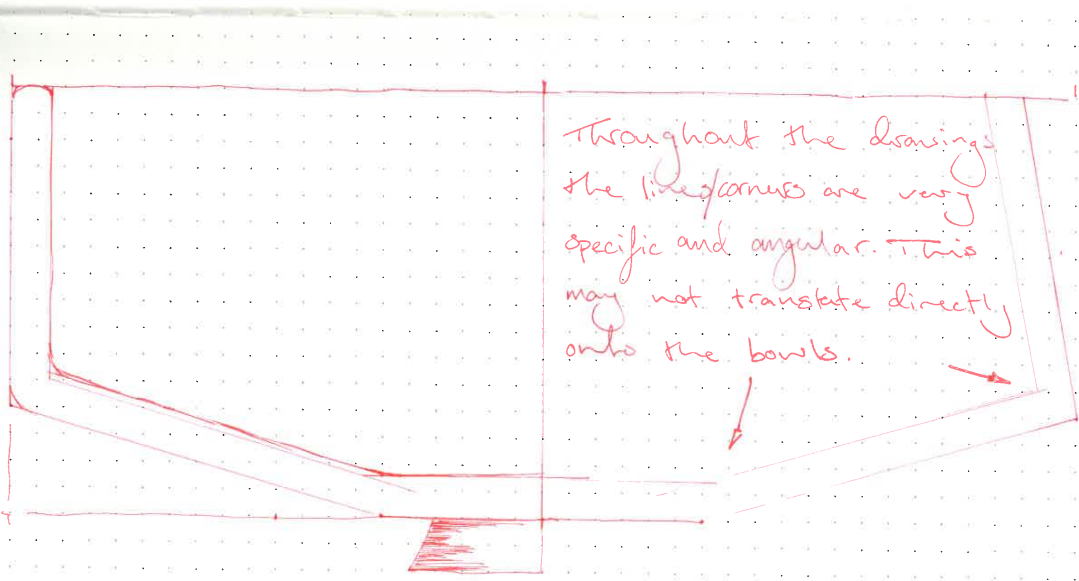 Throughout the drawings
the lines/corners are very
specific and angular. This
may not translate directly
onto the bowls.